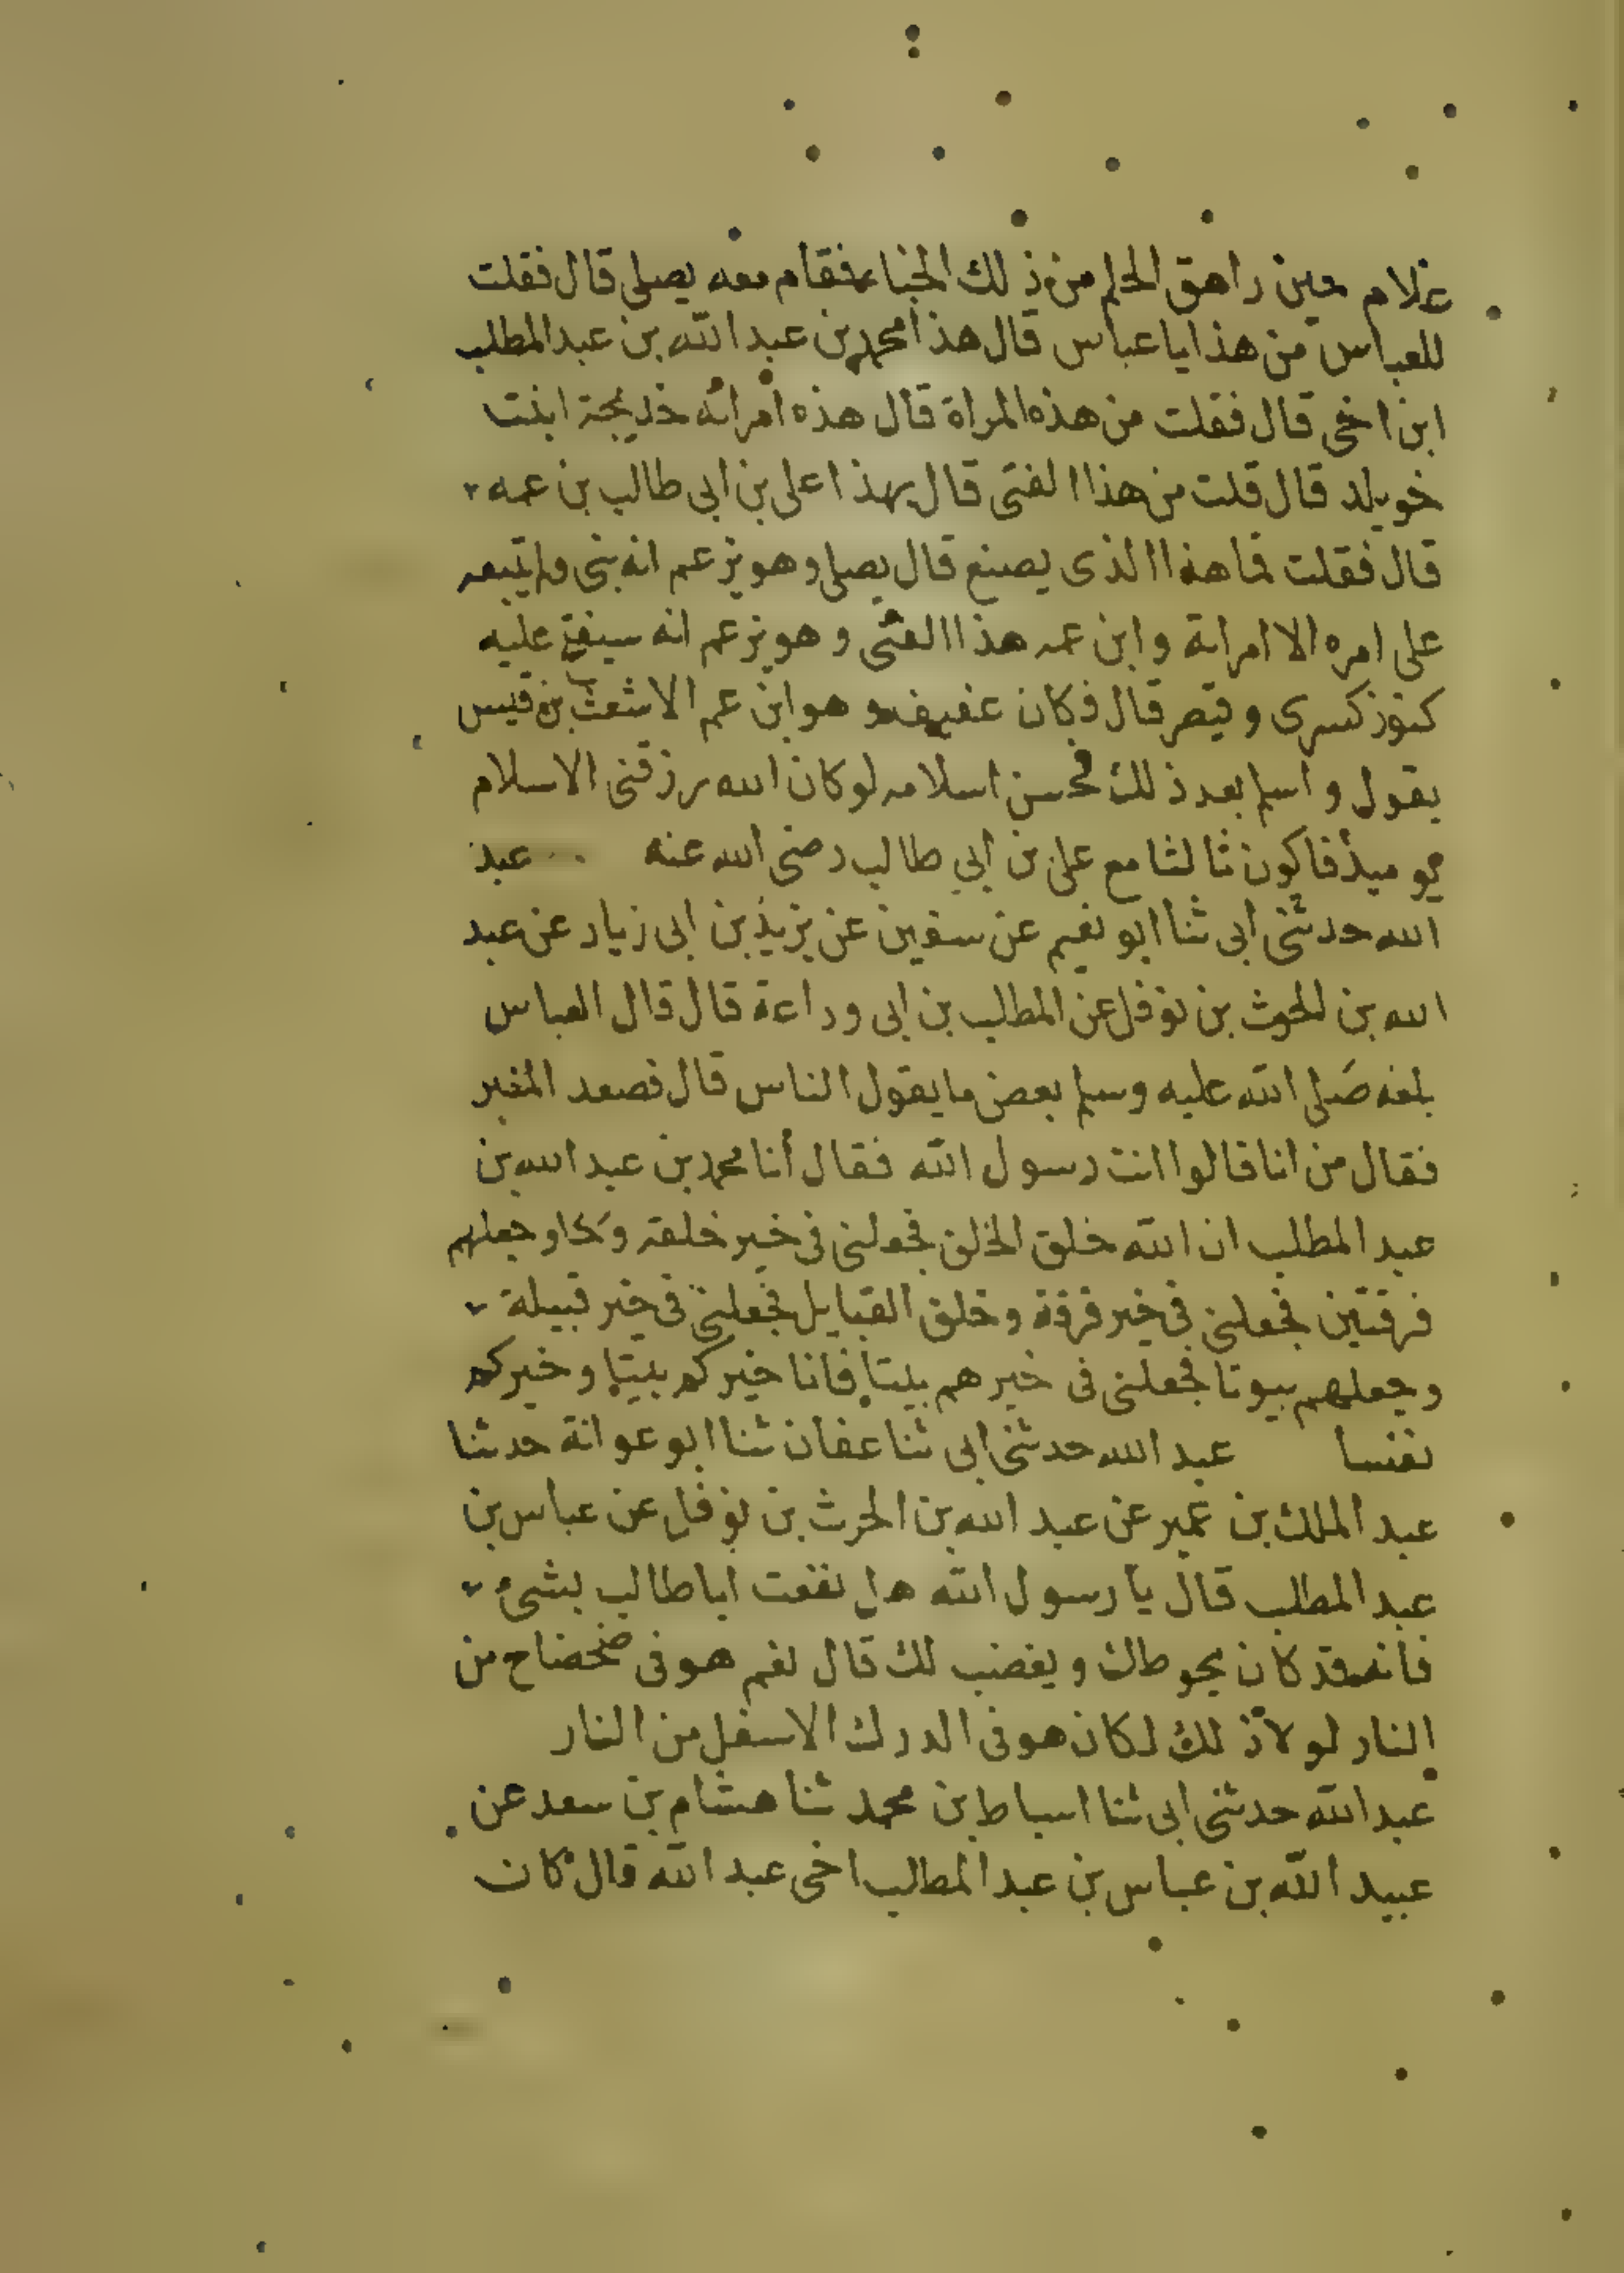 غلام حين راهق الحلم من ذلك الخباء فقام معه يصلي قال فقلت
للعباس من هذا يا عباس قال هذا محمد بن عبد الله بن عبد المطلب
ابن اخي قال فقلت من هذه المراة قال هذه امراته خديجة ابنت
خويلد قال قلت من هذا الفتى قال هذا على بن ابى طالب بن عمه
قال فقلت فما هذا الذى يصنع قال يصلى وهو يزعم انه نبى ولم يتبعه
على امره الا امراته وابن عمه هذا الفتى وهو يزعم انه سيفتح عليه
كنوز كسرى وقيصر قال فكان عفيف وهو ابن عم الاشعث بن قيس
يقول واسلم بعد ذلك فحسن اسلامه لو كان الله رزقنى الاسلام
يوميذ فاكون ثالثا مع على بن ابي طالب رضى الله عنه عبد
الله حدثنى ابى ثنا ابو نعيم عن سفين عن يزيد بن ابى زياد عن عبد
الله بن الحرث بن نوفل عن المطلب بن ابى وداعة قال قال العباس
بلغه صلى الله عليه وسلم بعض ما يقول الناس قال فصعد المنبر
فقال من انا قالوا انت رسول الله فقال أنا محمد بن عبد الله بن
عبد المطلب ان الله خلق الخلق فجعلنى فى خير خلقه وجعلهم
فرقتين فجعلنى فى خير فرقة وخلق القبايل فجعلنى فى خير قبيلة
وجعلهم بيوتا فجعلنى فى خيرهم بيتا فانا خيركم بيتا وخيركم
نفسا عبد الله حدثنى ابى ثنا عفان ثنا ابو عوانة حدثنا
عبد الملك بن عمير عن عبد الله بن الحرث بن نوفل عن عباس بن
عبد المطلب قال يا رسول الله هل نفعت ابا طالب بشئ
فانه قد كان يحوطك ويغضب لك قال نعم هو فى ضحضاح من
النار لولا ذلك لكان هو فى الدرك الاسفل من النار
عبد الله حدثنى ابى ثنا اسباط بن محمد ثنا هشام بن سعد عن
عبيد الله بن عباس بن عبد المطلب اخى عبد الله قال كان